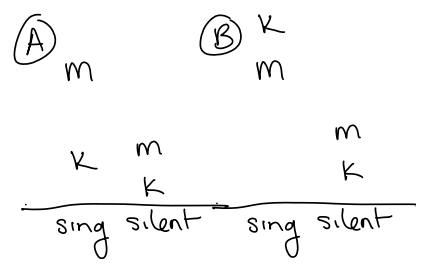 A
m
K m
K
sing silent
B K
m
m
K
sing silent